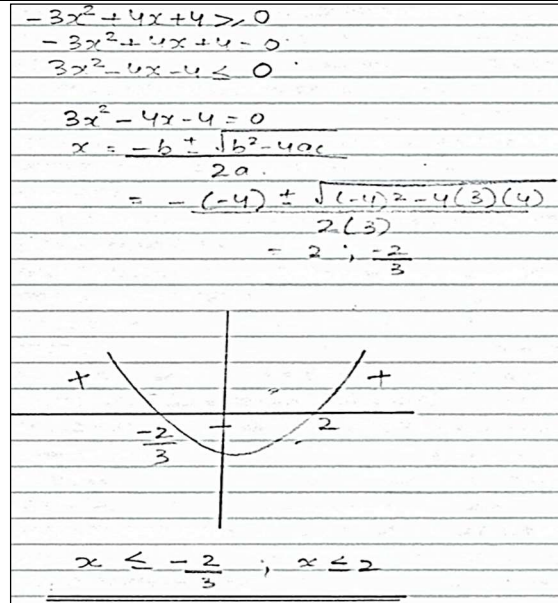 -3x² + 4x + 4 ⩾ 0
-3x² + 4x + 4 - 0
3x² - 4x - 4 ≤ 0
3x² - 4x - 4 = 0
x = -b ± √b² - 4ac
2a
= -(-4) ± √(-4)2 - 4(3)(4)
2(3)
= 2 ; -2/3
+ +
-2/3 - 2
x ≤ -2/3 ; x ≤ 2